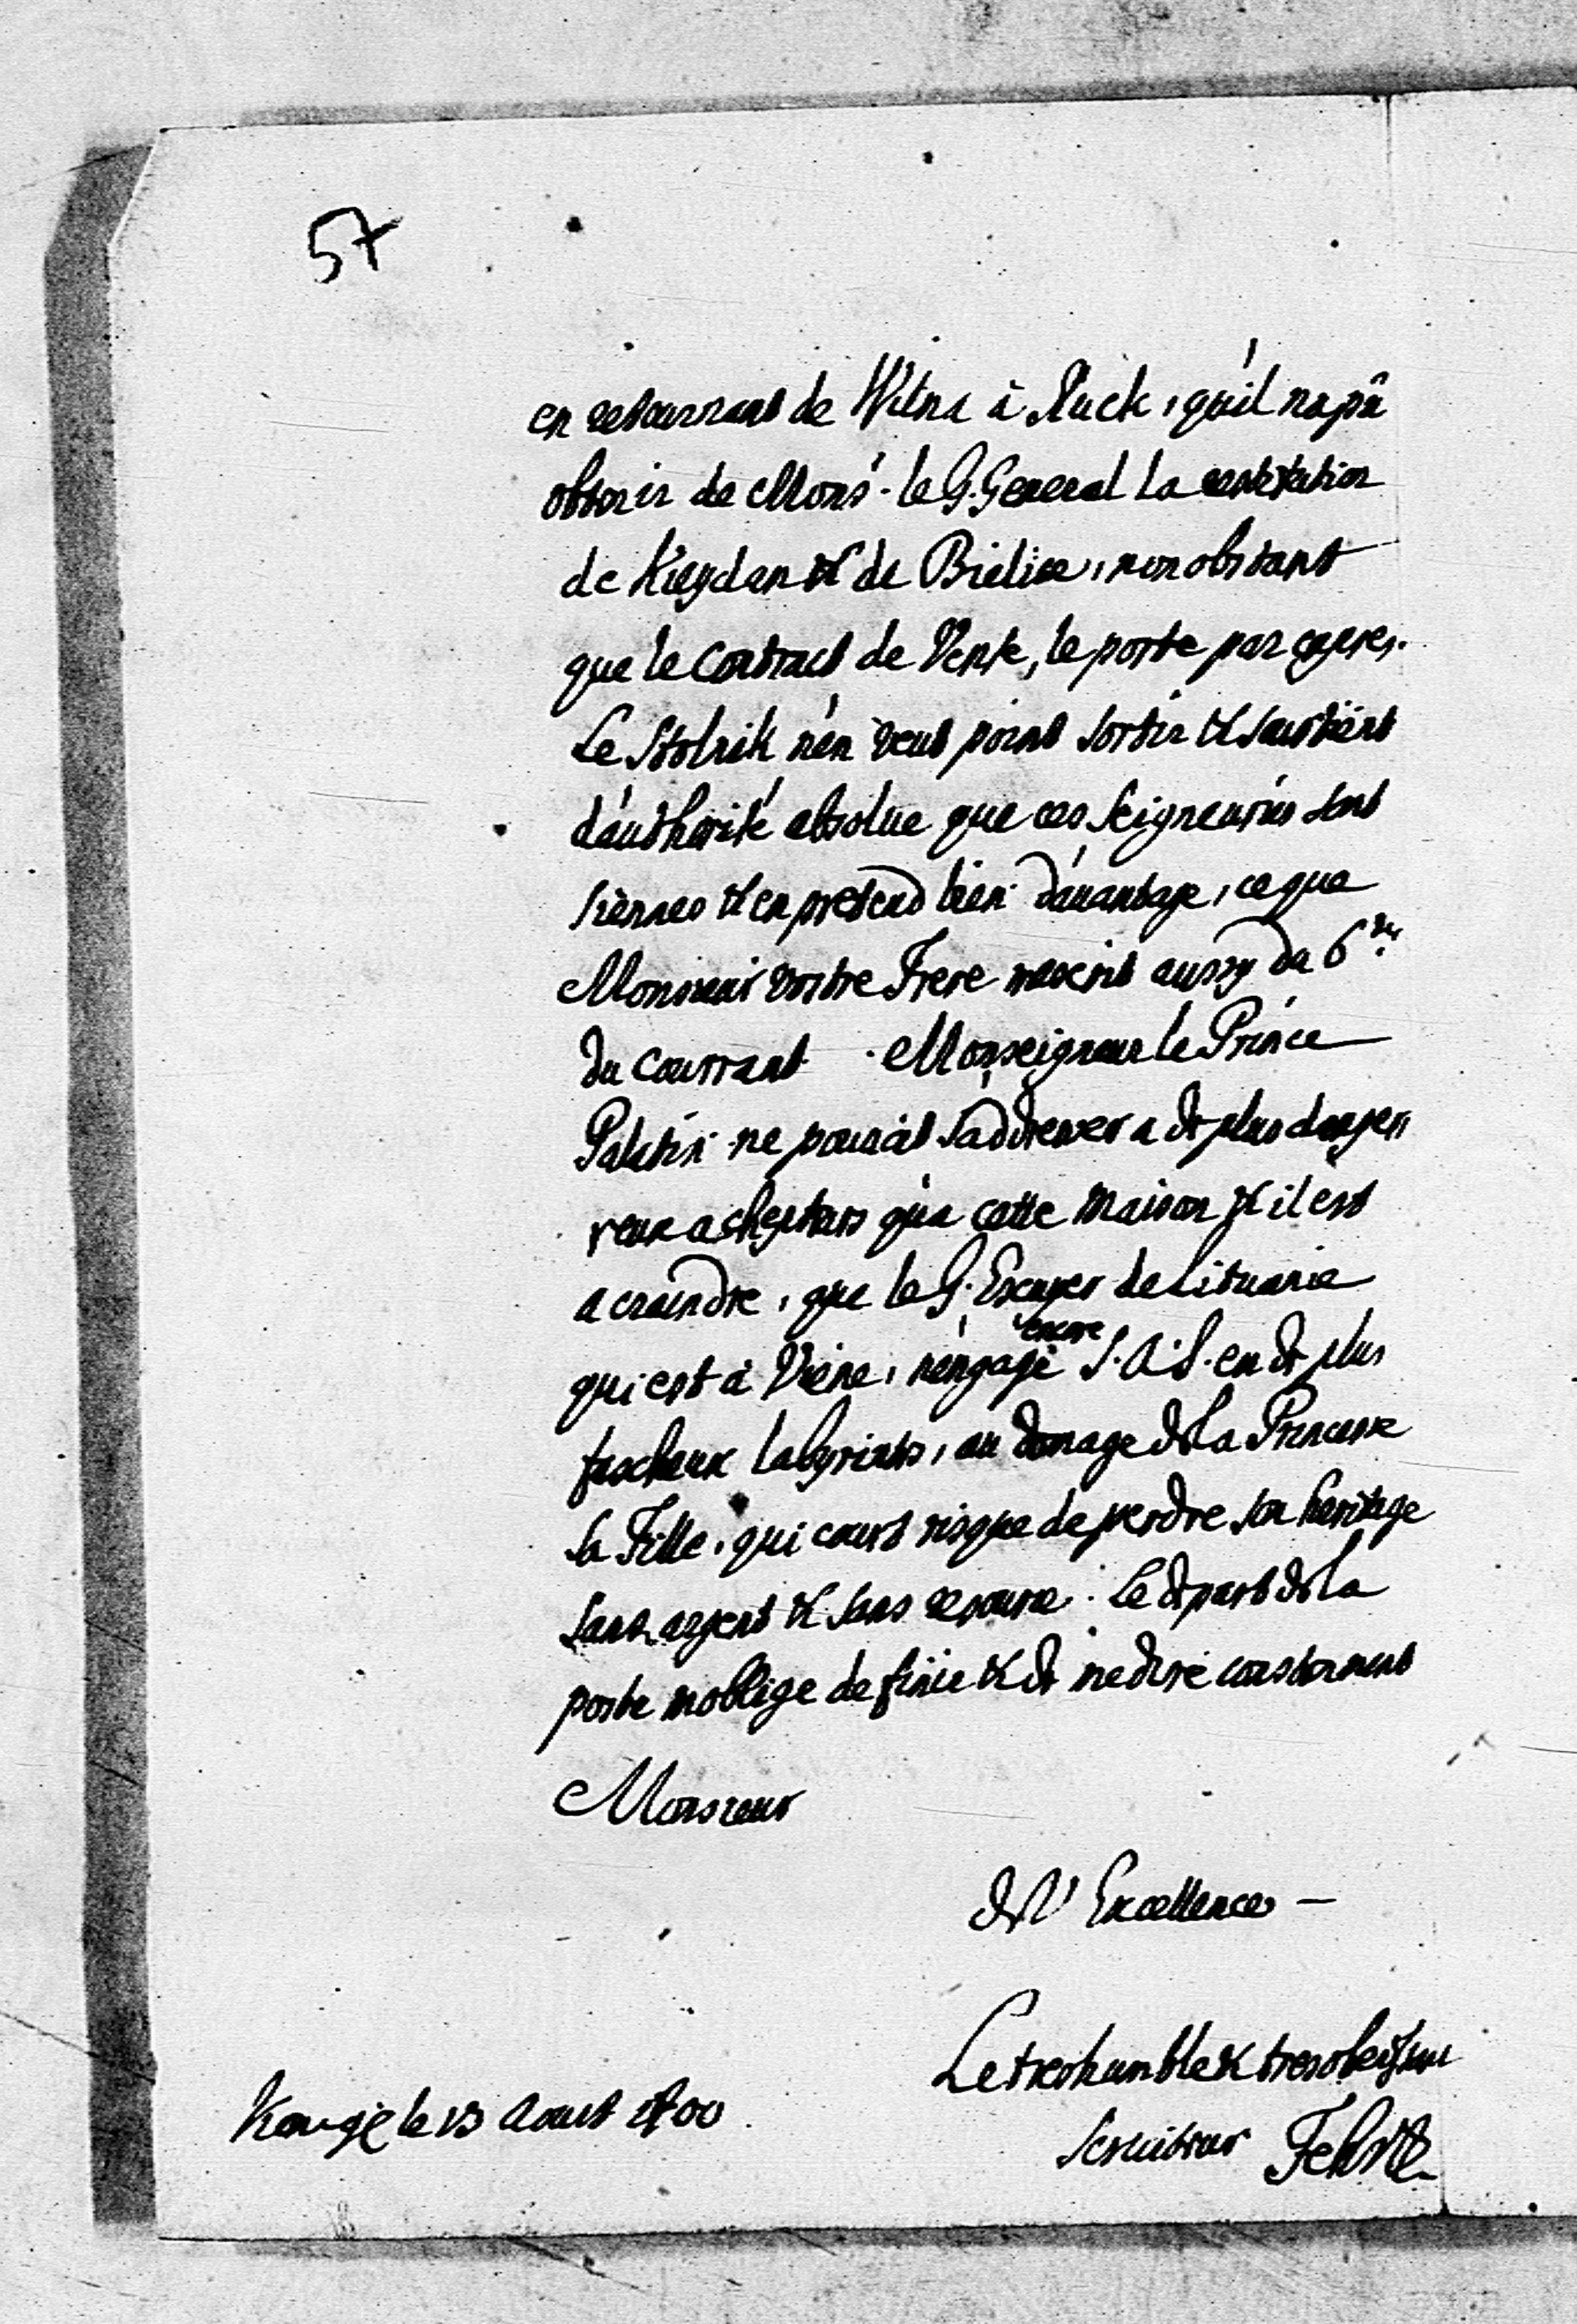 57
en retournant de Wilna à Sluck, qu'il napû
obtenir de Mons.r le G. General la restitution
de Kieydan & de Bielice, nonobstant
que le Contract de Vente, le porte par expres.
Le Stolnik n'en veut point sortir & soustient
d'authorité absolue que ces Seigneuries sont
siennes & en pretend bien d'auantage, ce que
Monsieur vostre Frere mescrit aussy du 6.
du Courrant. Monseigneur le Prince
Palatin ne pouuait s'addresser a de plus danger
reux achepteurs qu'a cette maison & il est
a craindre, que le G. Escuyer de Lituanie
qui est à Viene, n'engage encore S. A. S. en de plus
fascheux labyrints, au domage de la Princesse
sa Fille, qui court risque de perdre son heritage
sans argent & sans resource. Le depart de la
poste m'oblige de finir & de me dire constament
Monsieur
de V. Excellence
Le tres humble & tres obeissant
Seruiteur
le 13 Aoust 1700